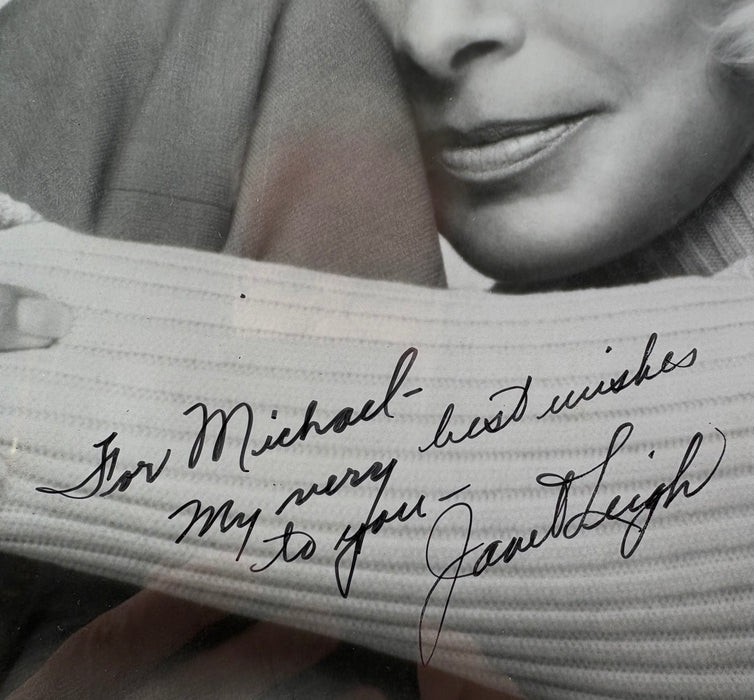 For Michael-
My very best wishes
to you-
Janet Leigh